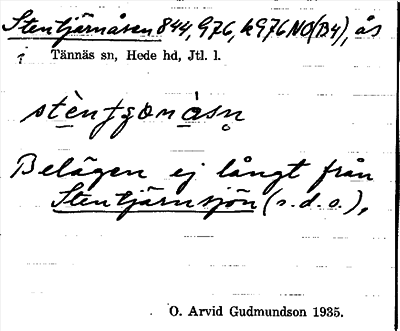 Stentjärnåsen 844, 976, k976NO(B4), ås
i Tännäs sn, Hede hd, Jtl. l.
Belägen ej långt från
Stentjärnsjön (s.d.o.),
O. Arvid Gudmundson 1935.